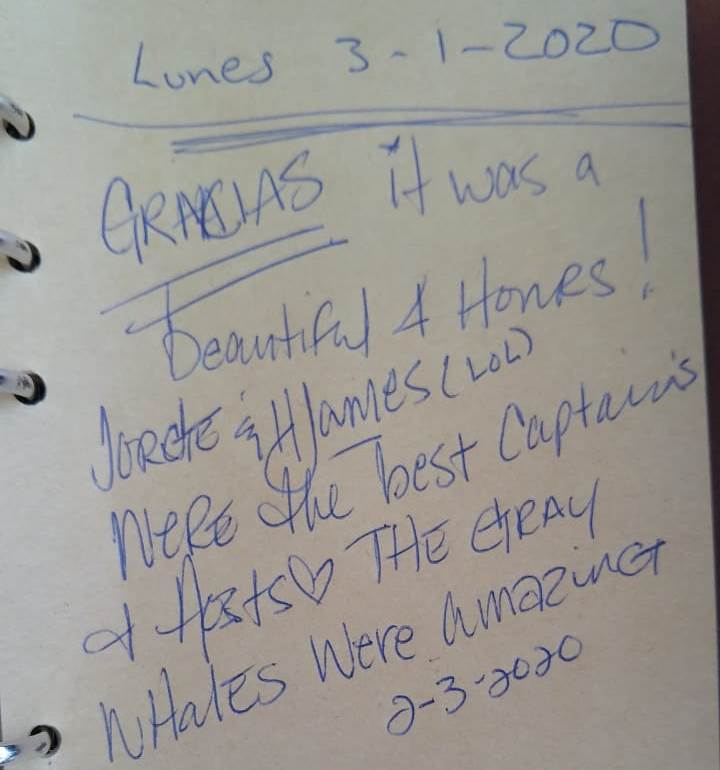 Lunes 3-1-2020
GRACIAS it was a
beautiful 4 HoNRs!
JORGE & HJAMES (LOL)
WERE the best Captains
& Hosts♡ THE GRAY
WHALES Were amazing
2-3-2020